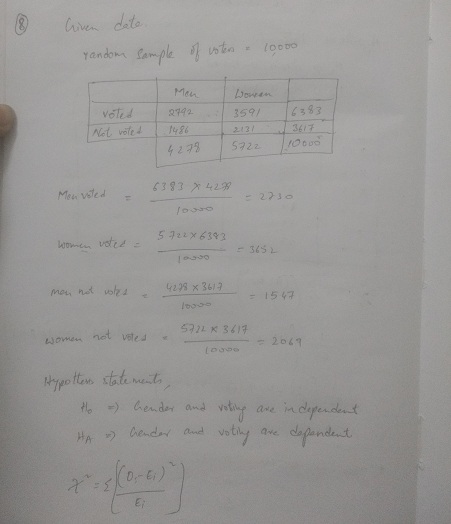 8 Given data
random sample of voters = 10,000
Men Women
Voted 2792 3591 6383
Not voted 1486 2131 3617
4278 5722 10000
Men voted = 6383 × 4278 / 10000 = 2730
women voted = 5722 × 6383 / 10000 = 3652
men not votes = 4278 × 3617 / 10000 = 1547
women not votes = 5722 × 3617 / 10000 = 2069
Hypothesis statements,
H₀ => Gender and voting are independent
HA => Gender and voting are dependent
χ² = Σ [(Oi - Ei)² / Ei]